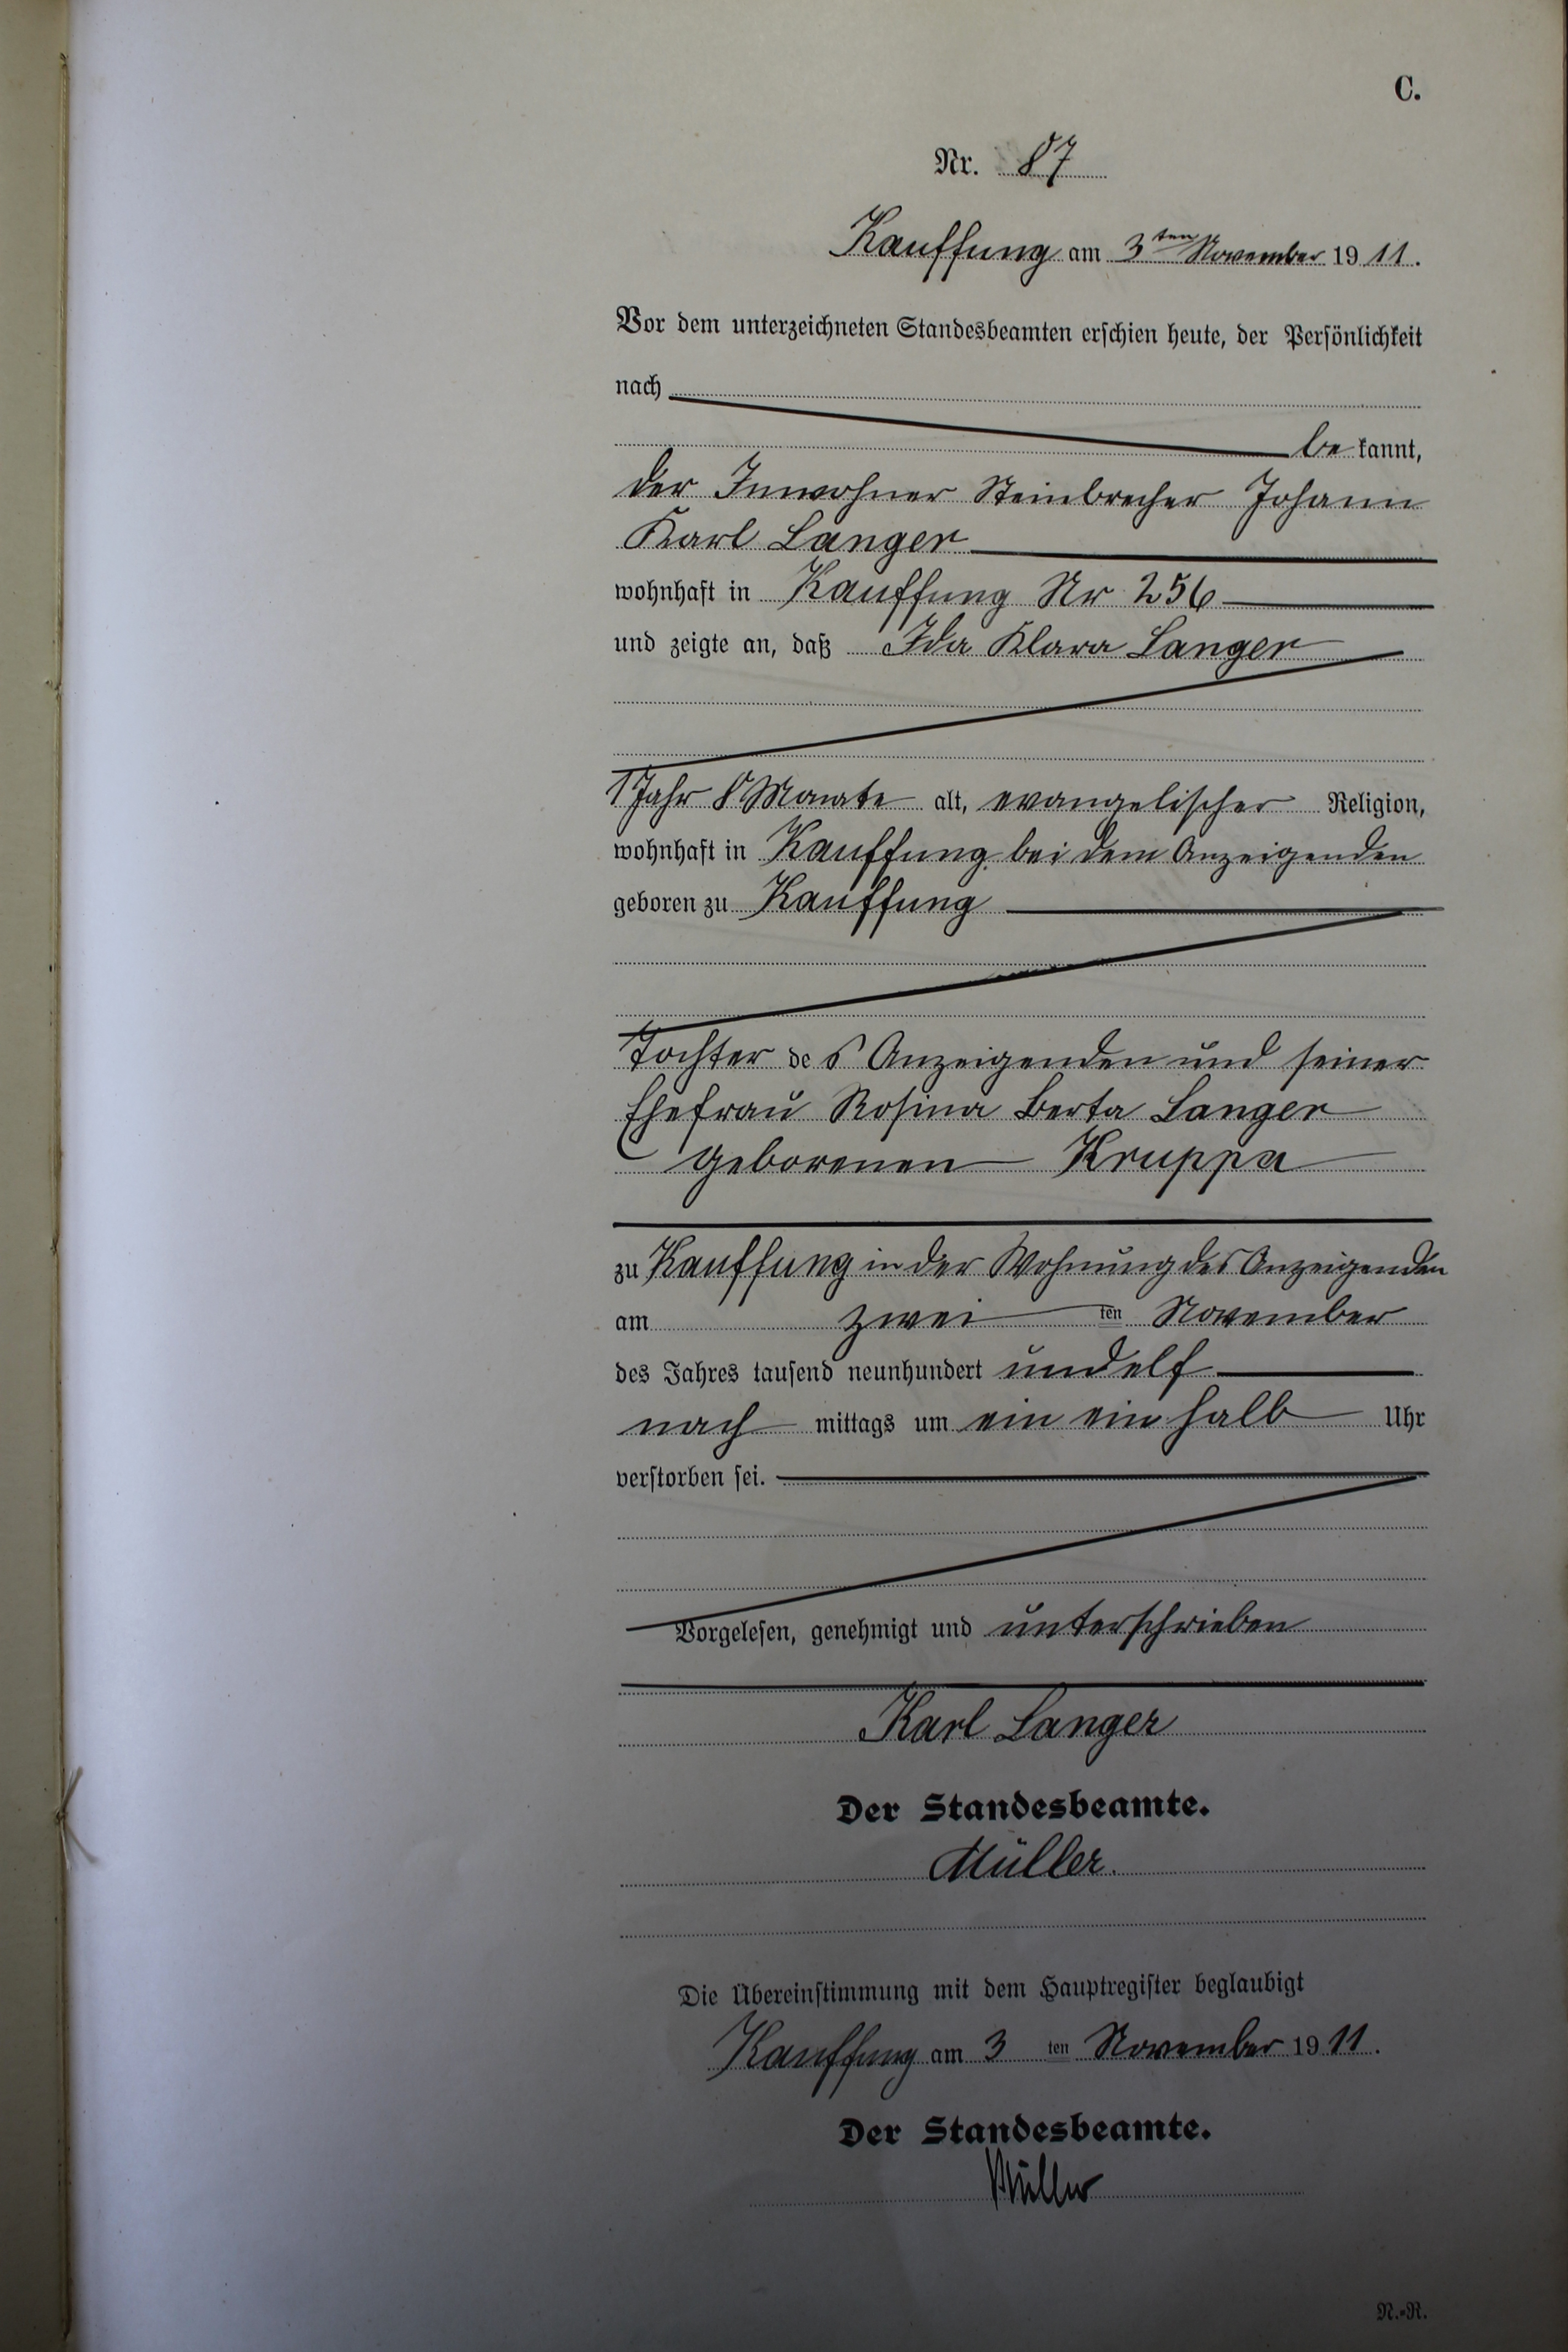 C.
Nr. 87
Kauffung am 3ten November 1911.
Vor dem unterzeichneten Standesbeamten erschien heute, der Persönlichkeit
nach
bekannt,
der Inwohner Steinbrecher Johann
Karl Langer
wohnhaft in Kauffung Nr 256
und zeigte an, daß Ida Klara Langer
1 Jahr 8 Monate alt, evangelischer Religion,
wohnhaft in Kauffung bei dem Anzeigenden
geboren zu Kauffung
Tochter des Anzeigenden und seiner
Ehefrau Rosina Berta Langer
geborenen Kruppa
zu Kauffung in der Wohnung des Anzeigenden
am zweiten November
des Jahres tausend neunhundert und elf
nachmittags um ein ein halb Uhr
verstorben sei.
Vorgelesen, genehmigt und unterschrieben
Karl Langer
Der Standesbeamte.
Müller.
Die Übereinstimmung mit dem Hauptregister beglaubigt
Kauffung am 3ten November 1911.
Der Standesbeamte.
Müller
N.-R.